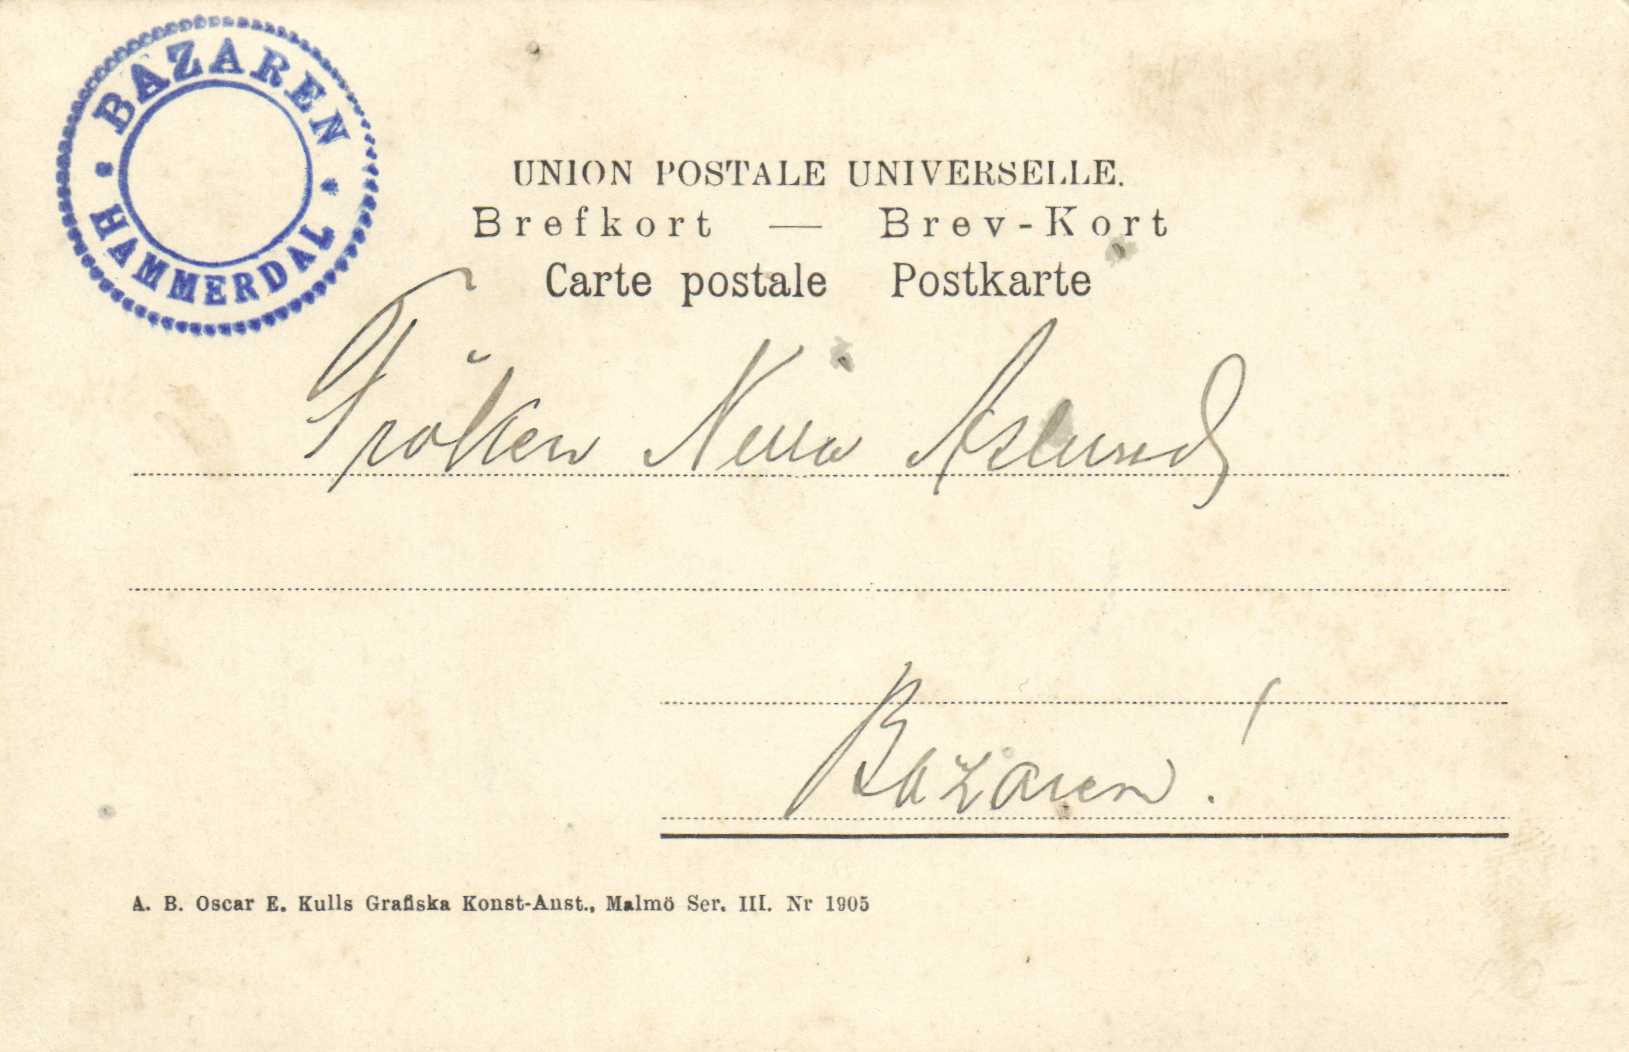 BAZAREN
* HAMMERDAL *
UNION POSTALE UNIVERSELLE.
Brefkort — Brev-Kort
Carte postale Postkarte
Fröken Åslund
Bazaren!
A. B. Oscar E. Kulls Grafiska Konst-Anst., Malmö Ser. III. Nr 1905